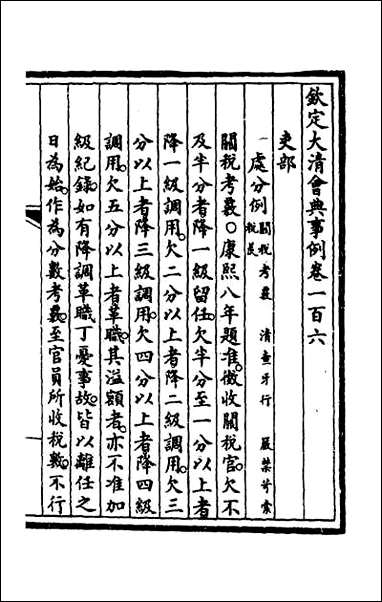 欽定大清會典事例卷一百六
吏部
處分例 關稅考覈 清查牙行 嚴禁苛索 稅表
關稅考覈○康熙八年題准徵收關稅官欠不
及半分者降一級留任欠半分至一分以上者
降一級調用欠二分以上者降二級調用欠三
分以上者降三級調用欠四分以上者降四級
調用欠五分以上者革職其溢額者亦不准加
級紀錄如有降調革職丁憂事故皆以離任之
日為始作為分數考覈至官員所收稅數不行